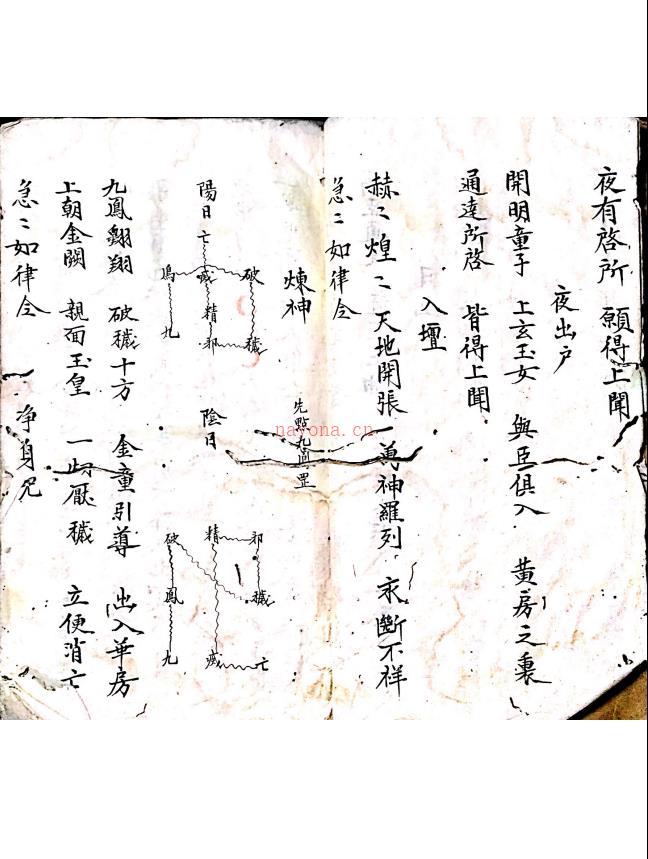 夜有啓所 願得上聞
夜出户
開明童子 上玄玉女 與臣俱入 黃房之裏
通達所啓 皆得上聞
入壇
赫〻煌〻 天地開張 萬神羅列 永斷不祥
急〻如律令
煉神
先點九鳳罡
陽日
亡
鳳 瘟 破
精
九 邪 穢
陰日
破 精 邪
鳳 穢
九 瘟 亡
九鳳翺翔 破穢十方 金童引導 出入華房
上朝金闕 親面玉皇 一切厭穢 立便消亡
急〻如律令 净身咒
nayona.cn